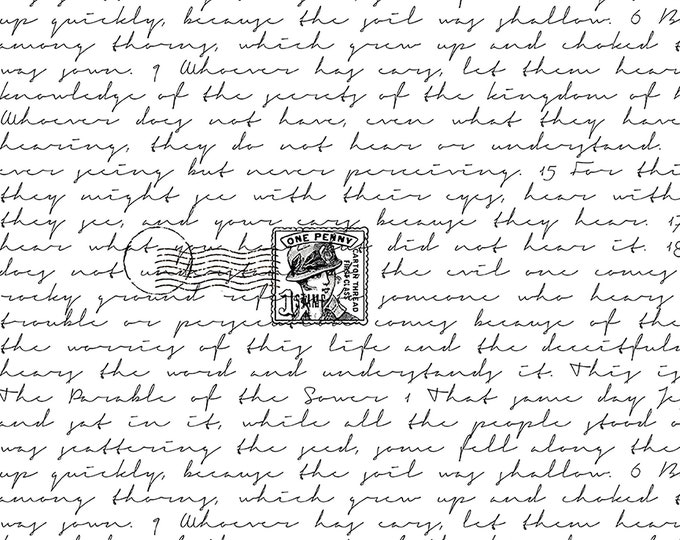 up quickly, because the soil was shallow. 6 B
among thorns, which grew up and choked t
was sown. 9 Whoever has ears, let them hear
knowledge of the secrets of the kingdom of h
Whoever does not have, even what they have
hearing, they do not hear or understand.
ever seeing but never perceiving. 15 For thi
they might see with their eyes, hear with
they see, and your ears because they hear. 17
hear what you hea did not hear it. 18
ONE PENNY
CARTON THREAD
FIRST CLASS
does not understand the evil one comes
rocky ground ref someone who hears
1D STAMP
trouble or persec comes because of the
the worries of this life and the deceitfuln
hears the word and understands it. This is
The Parable of the Sower 1 That same day Je
and sat in it, while all the people stood o
was scattering the seed, some fell along the
up quickly, because the soil was shallow. 6 B
among thorns, which grew up and choked t
was sown. 9 Whoever has ears, let them hear